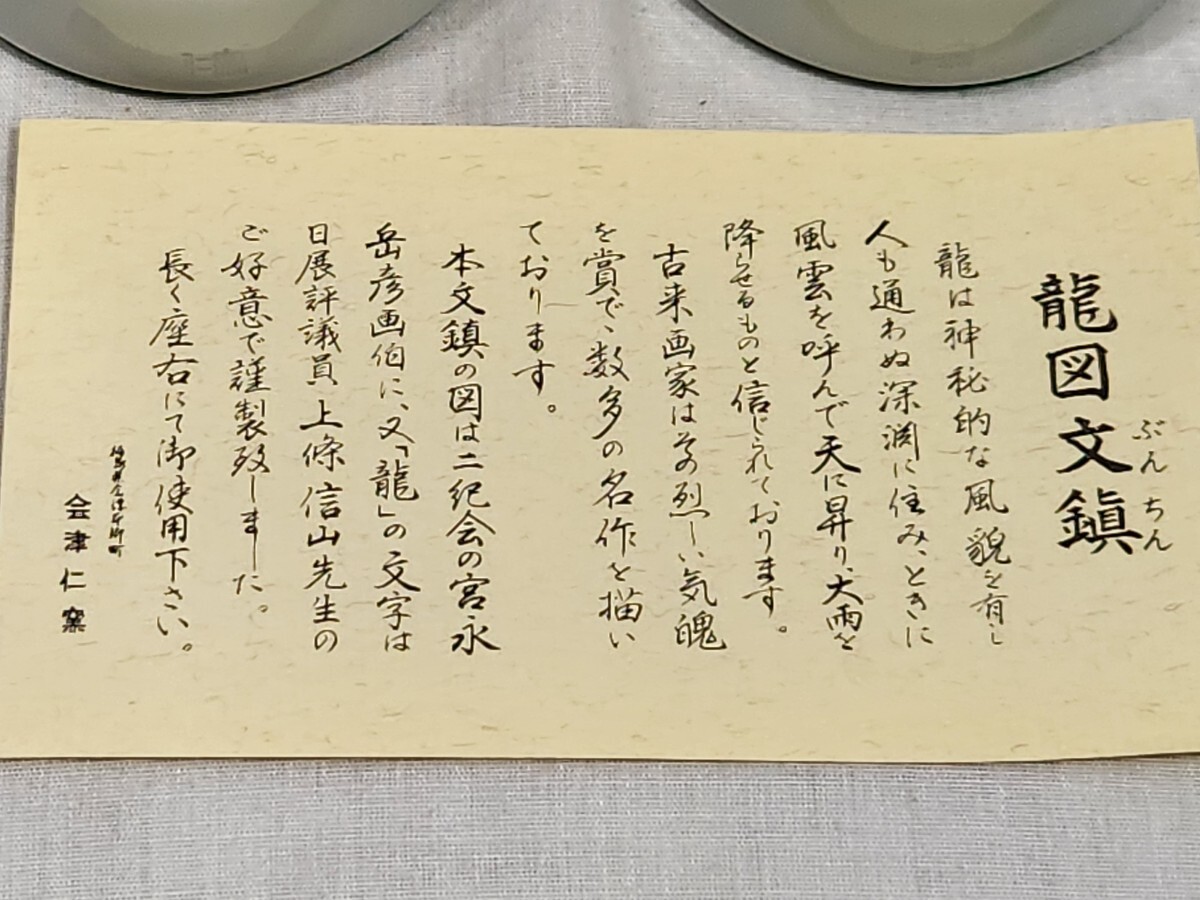 龍図文鎮
ぶんちん
龍は神秘的な風貌を有し
人も通わぬ深淵に住み、ときに
風雲を呼んで天に昇り、大雨を
降らせるものと信じられております。
古来画家はその烈しい気魄
を賞で、数多の名作を描い
ております。
本文鎮の図は二紀会の宮永
岳彦画伯に、又「龍」の文字は
日展評議員上條信山先生の
ご好意で謹製致しました。
長く座右にて御使用下さい。
福島県会津本郷町
会津仁窯